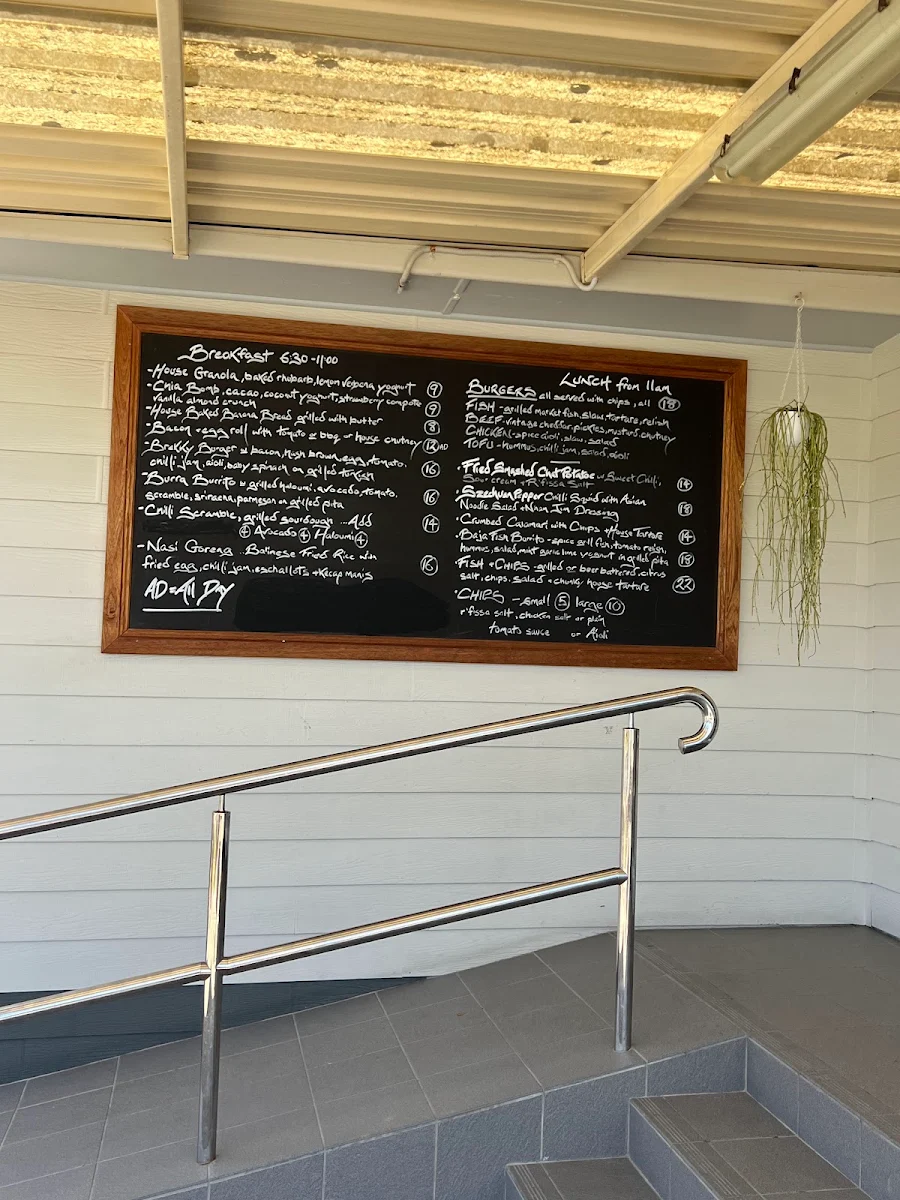 Breakfast 6:30-11:00
-House Granola, baked rhubarb, lemon verbena yoghurt 9
-Chia Bomb, cacao, coconut yoghurt, strawberry compote
vanilla almond crunch 9
-House Baked Banana Bread grilled with butter 8
-Bacon + egg roll with tomato or bbq or house chutney 12 AD
-Brekky Burger - bacon, hash brown, egg, tomato,
chilli jam, aioli, baby spinach on grilled turkish 16
-Burra Burrito - grilled haloumi, avocado, tomato,
scramble, sriracha, parmesan on grilled pita 16
-Chilli Scramble, grilled sourdough ...Add 14
4 Avocado 4 Haloumi 4
-Nasi Goreng - Balinese Fried Rice with
fried egg, chilli jam, eschallots + Kecap manis 16
AD = All Day
LUNCH from 11am
BURGERS all served with chips, all 18
FISH - grilled market fish, slaw, tartare, relish
BEEF - vintage cheddar, pickles, mustard, chutney
CHICKEN - spice aioli, slaw, salad
TOFU - hummus, chilli jam, salad, aioli
·Fried Smashed Chat Potatoe w Sweet Chilli,
Sour cream + R'fissa Salt 14
·Szechuan Pepper Chilli Squid with Asian
Noodle Salad + Nham Jim Dressing 18
·Crumbed Calamari with Chips + House Tartare 14
·Baja Fish Burrito - spice grill fish, tomato relish,
hummus, salad, mint garlic lime yoghurt in grilled pita 18
·FISH + CHIPS - grilled or beer battered, citrus
salt, chips, salad + chunky house tartare 22
·CHIPS - small 5 large 10
r'fissa salt, chicken salt or plain
tomato sauce or Aioli